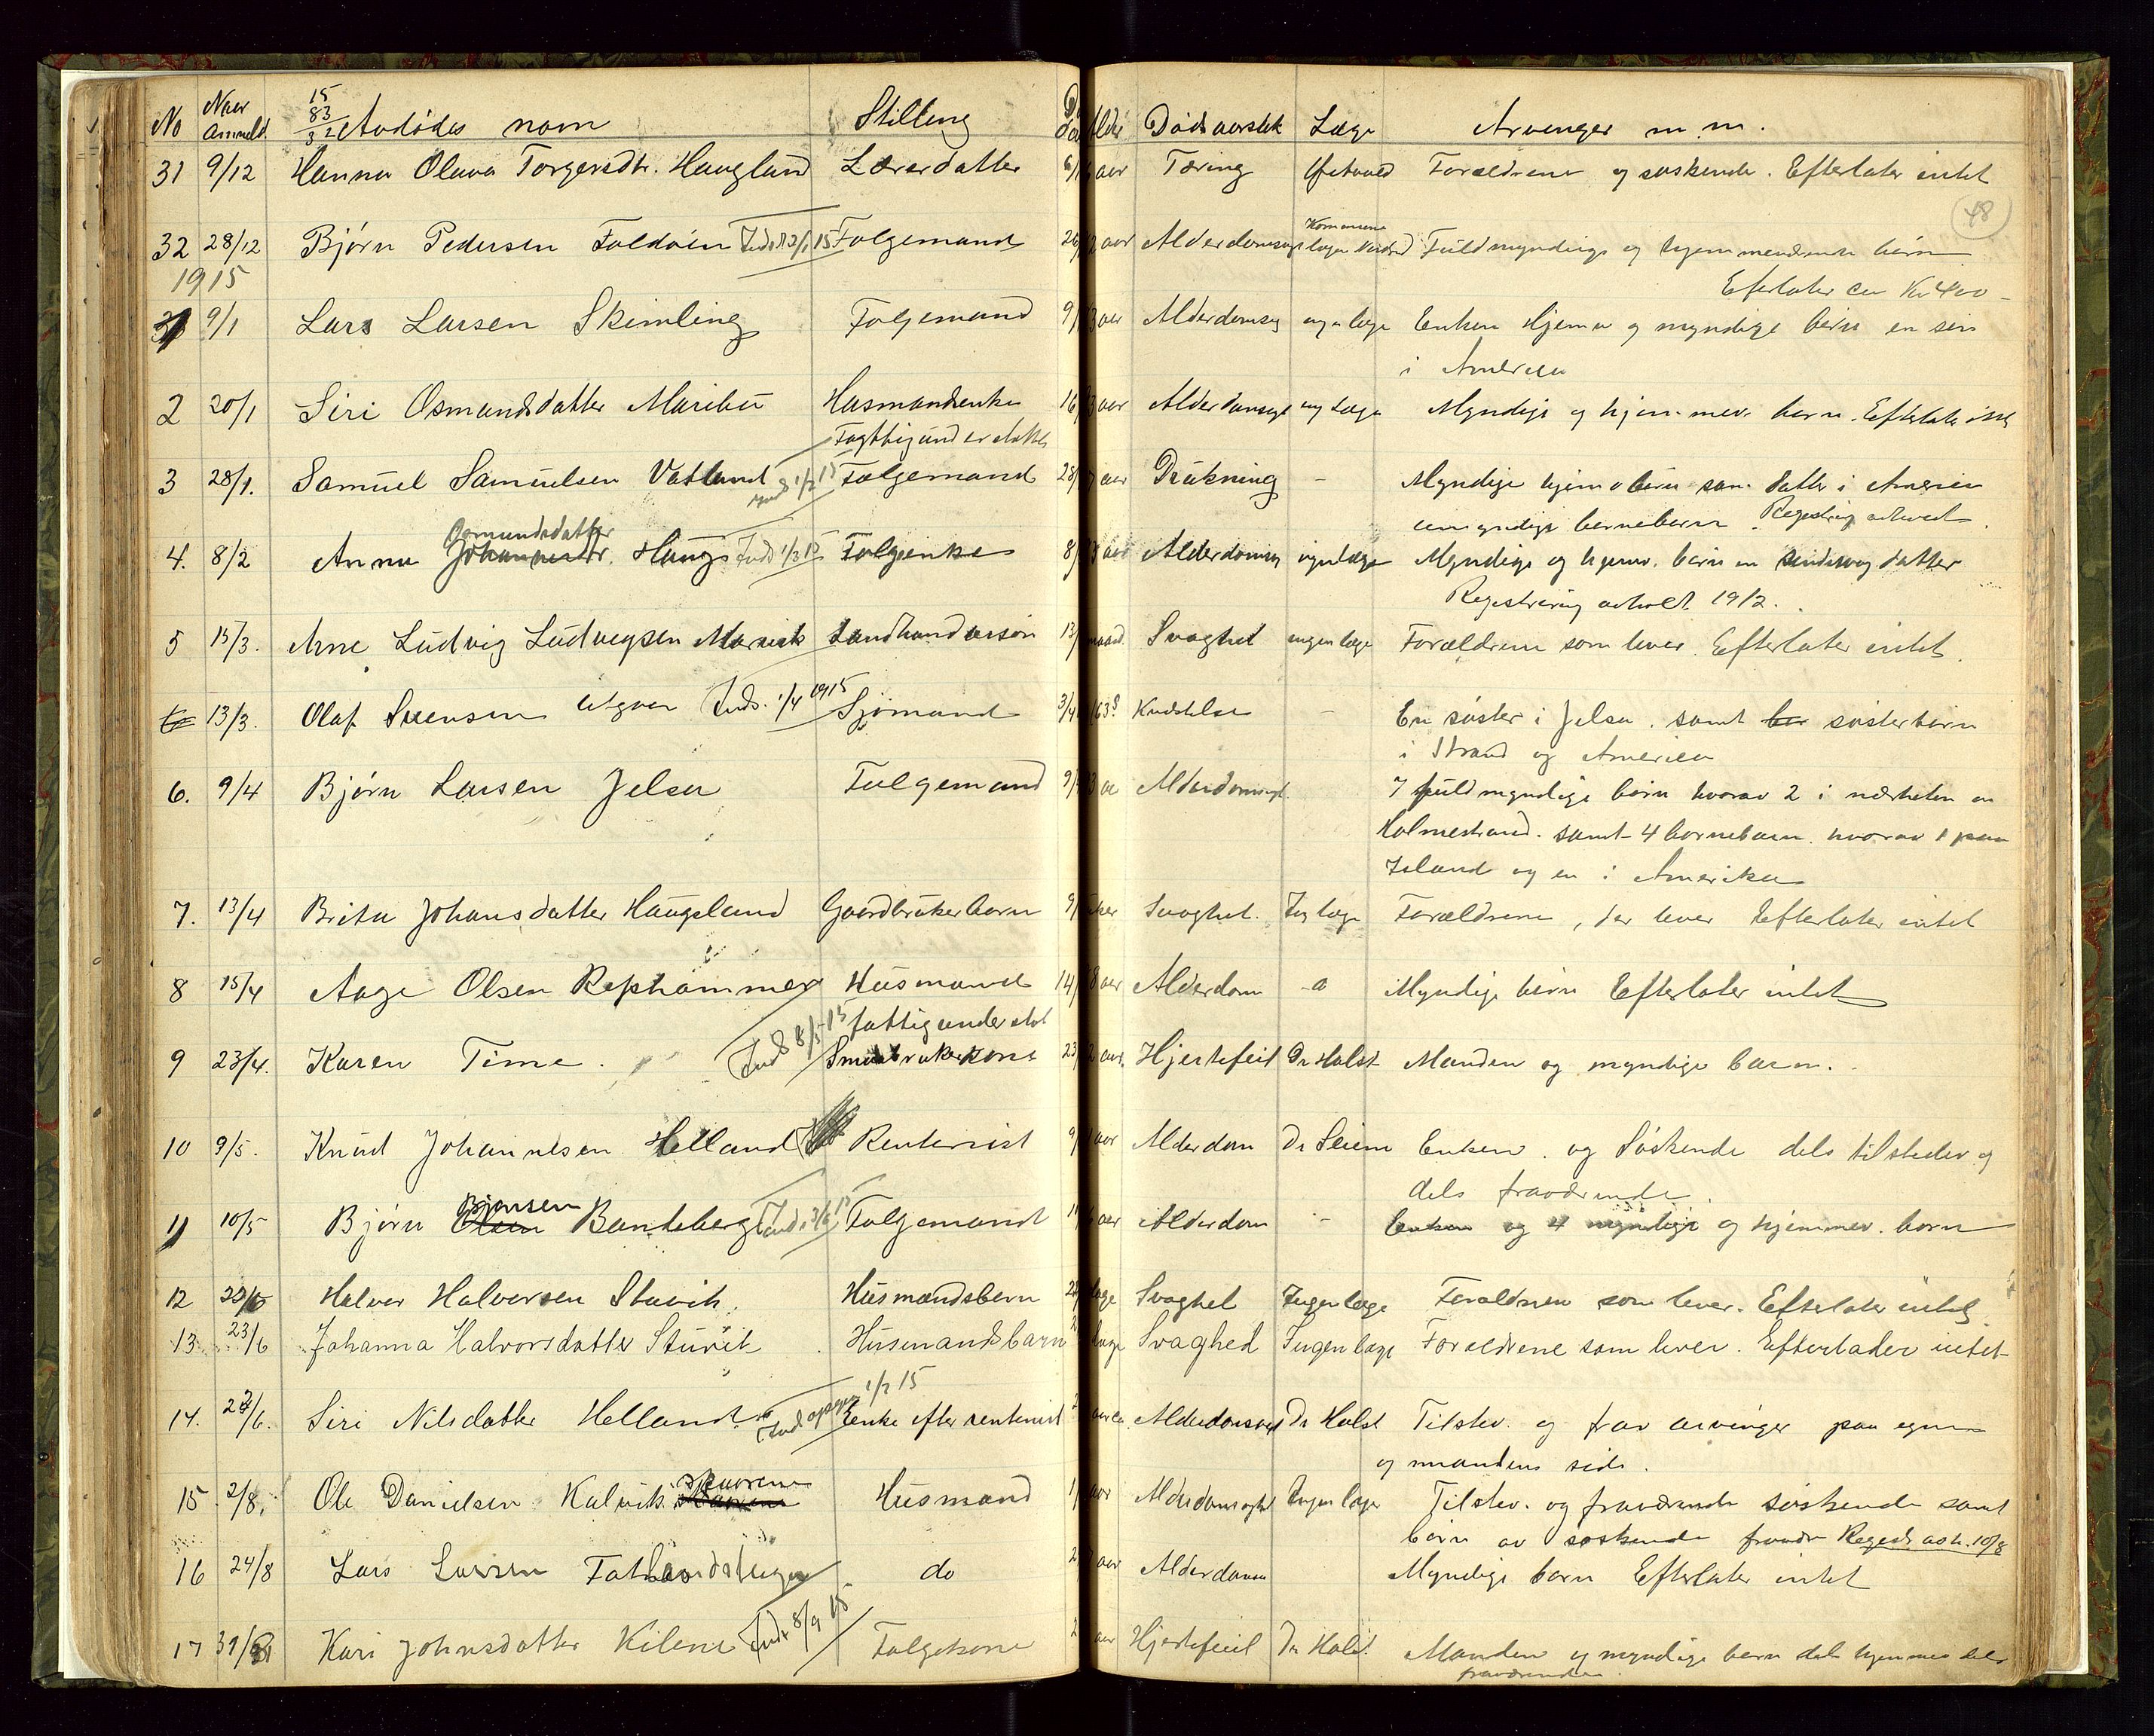 No Naar anmeldt 15 83 32 Avdødes navn Stilling Alder Dødsaarsak Læge Arvinger m.m.
31 9/12 Hanna Olava Torgersdtr. Haugland Lærerdatter 6/ aar Tæring Forældrene og søskende. Efterlater intet
48
Kommune
32 28/12 Bjørn Pedersen Foldøen Inds 12/1 15 Folgemand 26/ aar Alderdomssvag læge Fuldmyndige og hjemmeværende børn
1915 Efterlater ca Kr 400-
1 9/1 Lars Larsen Skimling Folgemand 9/ aar Alderdomsv ingen læge Enken Hjemv og myndige børn en søn
i Amerika
2 20/1 Siri Osmundsdatter Maribu Husmandsenke 16/ aar Alderdomsvag ing læge Myndige og hjem-mev. barn. Efterlate intet
Fattigunderstøtte
3 28/1. Samuel Samuelsen Vatland Inds 1/2 15 Folgemand 28/ aar Drukning - Myndige hjemv børn sam. datter i Amerika
umyndige barnebarn. Registrering avholdt.
Osmundsdatter
4. 8/2 Anna Johannesdtr. Haugs Inds 1/3 15 Folgeenke 8/ aar Alderdomsv ingen læge Myndige og hjemv. børn en sindssvag datter
Registrering avholdt 19/2.
5 15/3. Arne Ludvig Ludvigsen Marvik Landhandlersøn 13/ maand. Svaghet ingen læge Forældrene som lever. Efterlater intet.
6 13/3. Olaf Svensen Utgven Inds. 1/4 1915 Sjømand 3/4 63? Kvælelse - En søster i Jelsa. samt bar søsterbarn
i Strand og Amerika
6. 9/4 Bjørn Larsen Jelsa Folgemand 9/ aar Alderdomsvgt. 7 fuldmyndige børn hvorav 2 i nærheten av
Holmestrand. samt 4 barnebarn. hvorav 1 paa
Island og en i Amerika
7. 13/4 Brita Johansdatter Haugsland Gaardbrukerbarn 9/ uker Svaghet. Ing læge Forældrene, der lever Efterlater intet
8 15/4 Aage Olsen Rephammer Husmand 14/ 8 aar Alderdom -a Myndige børn Efterlater intet
Inds 8/5 15 fattigunderstøt
9 23/4. Karen Time. Smaabrukerkone 23/ aar. Hjertefeil Dr Holst Manden og myndige barn.
10 9/5. Knut Johannesen Helland Rentenist 9/ aar Alderdom Dr Seiem Enken. og Søskende dels tilstedev og
dels fraværende.
Bjørnsen
11 10/5 Bjørn Olsen Bandeberg Inds 2/6 15 Folgemand 10/ aar Alderdom - Enken og 4 myndige og hjemmev. barn
12 23/6 Halvor Halvorsen Stuvik. Husmandsbarn dage Svaghet Ingen læge Forældrene som lever. Efterlater intet
13. 23/6 Johanna Halvorsdatter Stuvik Husmandsbarn dage Svaghed Ingen læge Forældrene som lever. Efterlader intet
1/7 15
14. 28/6. Siri Nilsdatter Helland. Inds Enke efter rentenist aar Alderdomssvag Dr Holst Tilstev. og frav arvinger paa egen
og mandens side.
15 2/8. Ole Danielsen Kalvik Skaarene Husmand 1/ aar Alderdomssvaghet Ingen læge Tilstev. og fraværende søskende samt
børn av søskende fravær Regestr avh. 10/8
16 24/8 Lars Larsen Fatlandsteigen do aar Alderdomm Myndige børn Efterlater intet
17 31/8 Kari Johnsdatter Kilene Inds 8/9 15 Folgekone aar Hjertefeil Dr Holst. Manden og myndige børn dels hjemme dels
fraværende.